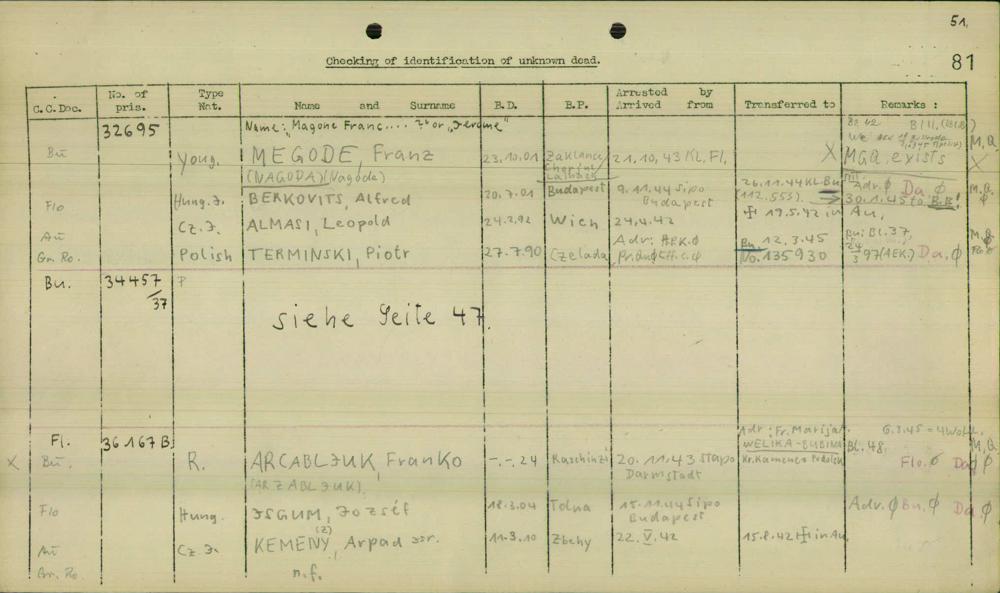 51.
81
Checking of identification of unknown dead.
C.C.Doc. No. of pris. Type Nat. Name and Surname B.D. B.P. Arrested by Arrived from Transferred to Remarks :
32695 Name: "Magone Franc.... ? or "Jerome"
Bu Youg. MEGODE, Franz 23.10.01 Zaklanc 21.10.43 KL. Fl. X MGQ. exists M.Q. X
(NAGODA) (Nagode) Laibach
Flo Hung. J. BERKOVITS, Alfred 20.7.01 Budapest 9.11.44 Sipo Budapest 26.11.44 KL. Bu (112.553) Adr. ϕ Da ϕ 30.1.45 to B.B! M.Q. ϕ
Au Cz. J. ALMASI, Leopold 24.2.92 Wien 24.4.42 19.5.42 in Au,
Gr. Ro. Polish TERMINSKI, Piotr 27.7.90 Czelada Adv: AEK.ϕ Bu. 12.3.45 No. 135930 Bu: Bl. 37, 24/3 97 (AEK.) Da. ϕ M.Q.
Bu. 34457/37 P
siehe Seite 47.
Fl. 36167 B. Adr: Fr. Marija 6.3.45 =
X Bu. R. ARCABLJUK, Franko -.-.24 Kaschinzi 20.11.43 Stapo Darmstadt WELIKA-BUBINA Kr. Kamenez Podolsk Bl. 48, Flo. ϕ Da ϕ M.Q. ϕ
(ARZABLJUK)
Flo Hung. ISGUM, Jozséf 18.3.04 Tolna 15.11.44 Sipo Budapest Adv. ϕ Bu. ϕ Da ϕ
(Z)
Au Cz. J. KEMENY, Arpad Isr. 11.3.10 Zbehy 22.V.42 15.8.42 in Au
Gr. Ro. n.f.